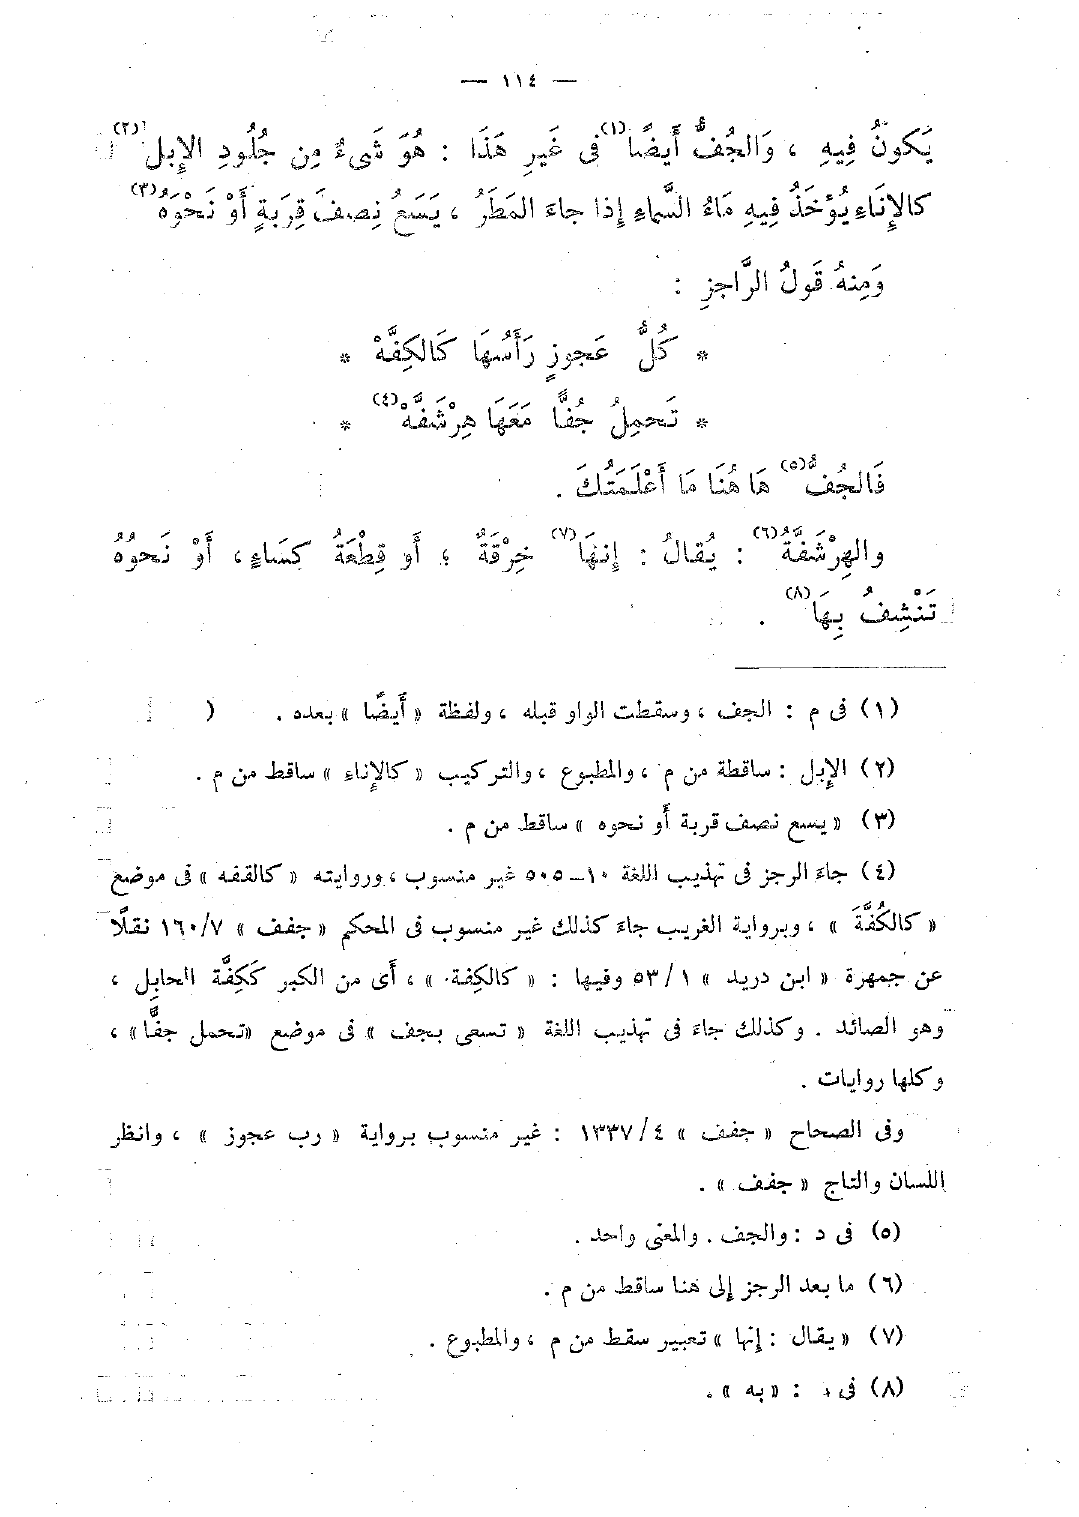 — ١١٤ —
يَكونُ فِيهِ ، وَالجُفُّ أَيضًا (١) فى غَيرِ هَذَا : هُوَ شَىءٌ مِن جُلُودِ الإِبل (٢)
كالإِنَاءِ يُؤْخَذُ فِيهِ مَاءُ السَّماءِ إِذا جاءَ المَطَرُ ، يَسَعُ نِصفَ قِربَةٍ أَوْ نَحْوَهُ (٣)
وَمِنهُ قَولُ الرَّاجزِ :
* كُلُّ عَجوزٍ رَأْسُهَا كَالكِفَّهْ *
* تَحمِلُ جُفًّا مَعَهَا هِرْشَفَّهْ (٤) *
فَالجُفُّ (٥) هَا هُنَا مَا أَعْلَمتُكَ .
والهِرْشَفَّةُ (٦) : يُقالُ : إِنهَا (٧) خِرْقَةٌ ؛ أَو قِطْعَةُ كِسَاءٍ ، أَوْ نَحوُهُ
تَنْشِفُ بِهَا (٨) .
(١) فى م : الجف ، وسقطت الواو قبله ، ولفظة « أَيضًا » بعده .
(٢) الإِبل : ساقطة من م ، والمطبوع ، والتركيب « كالإِناءِ » ساقط من م .
(٣) « يسع نصف قربة أَو نحوه » ساقط من م .
(٤) جاءَ الرجز فى تهذيب اللغة ١٠ــ٥٠٥ غير منسوب ، وروايته « كالقفه » فى موضع
« كالكُفَّةَ » ، وبرواية الغريب جاءَ كذلك غير منسوب فى المحكم « جفف » ١٦٠/٧ نقلًا
عن جمهرة « ابن دريد » ٥٣/١ وفيها : « كالكِفة » ، أَى من الكبر كَكِفَّة الحابِل ،
وهو الصائد . وكذلك جاءَ فى تهذيب اللغة « تسعى بجف » فى موضع «تحمل جفًّا» ،
وكلها روايات .
وفى الصحاح « جفف » ١٣٣٧/٤ : غير منسوب برواية « رب عجوز » ، وانظر
اللسان والتاج « جفف » .
(٥) فى د : والجف . والمعنى واحد .
(٦) ما بعد الرجز إِلى هنا ساقط من م .
(٧) « يقال : إِنها » تعبير سقط من م ، والمطبوع .
(٨) فى د : « به » .